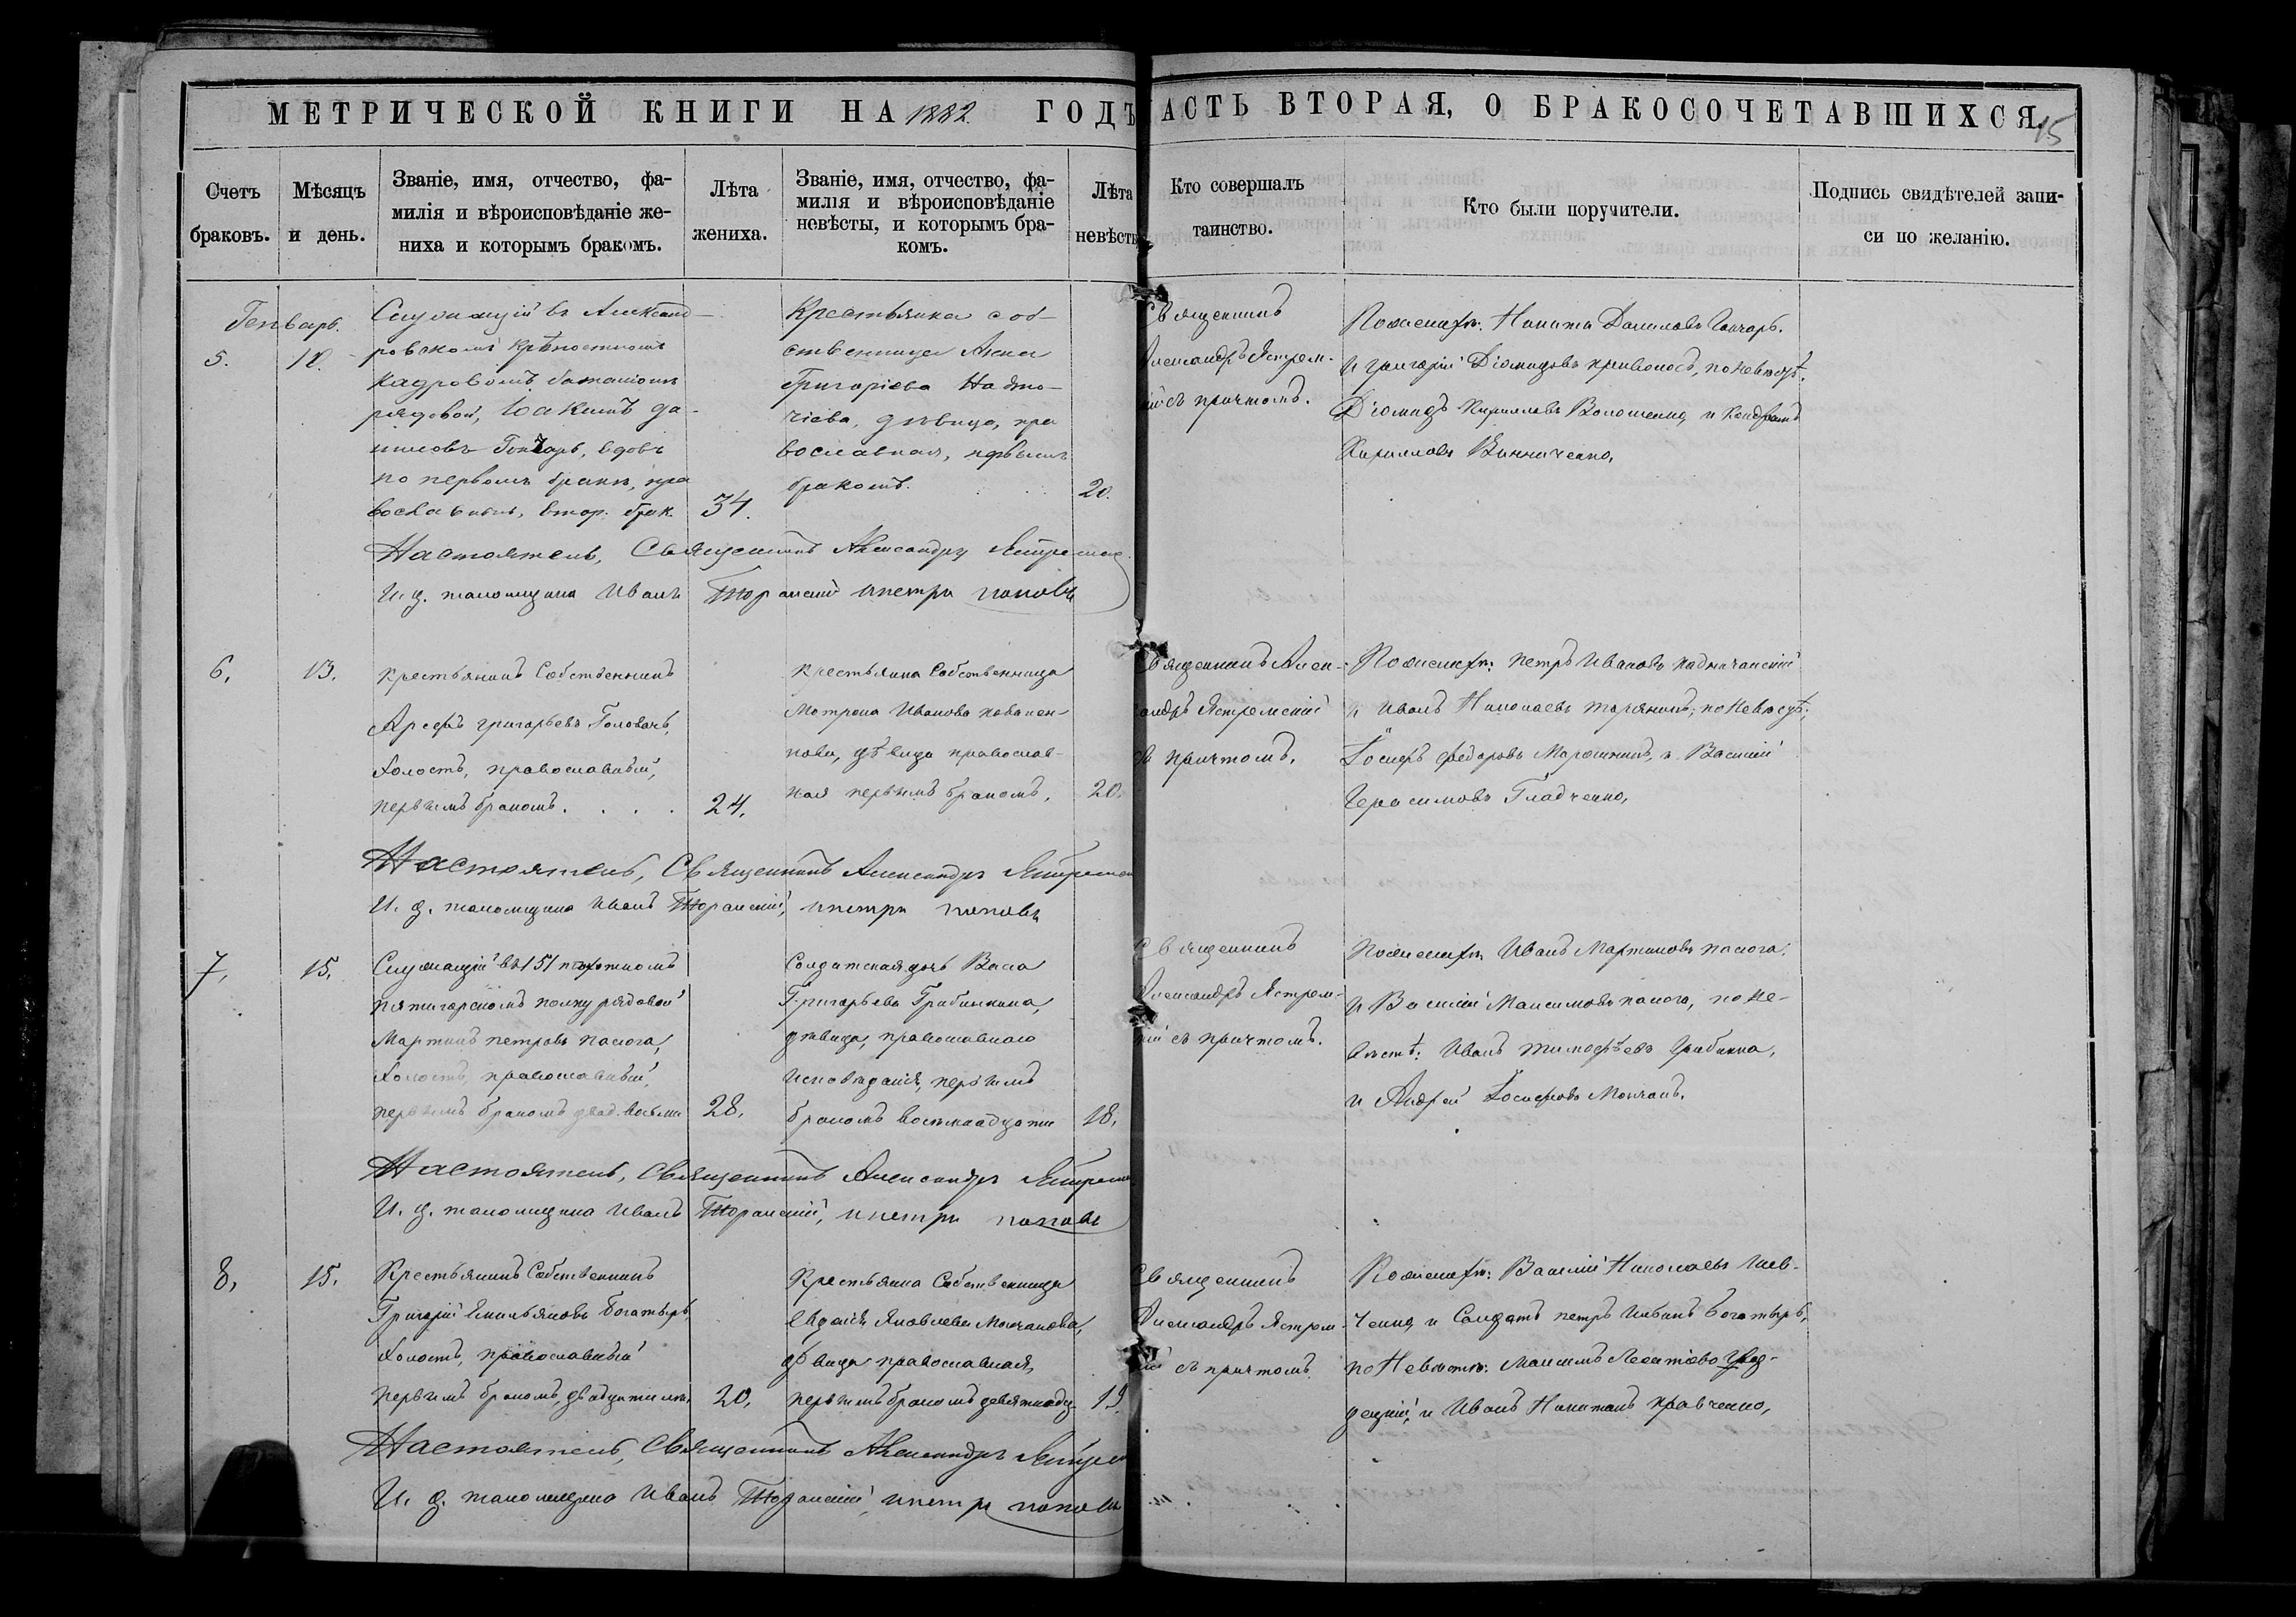 МЕТРИЧЕСКОЙ КНИГИ НА 1882 ГОДЪ
АСТЬ ВТОРАЯ, О БРАКОСОЧЕТАВШИХСЯ.
15
Счетъ браковъ.
Мѣсяцъ и день.
Званіе, имя, отчество, фа-
милія и вѣроисповѣданіе же-
ниха и которымъ бракомъ.
Лѣта
жениха.
Званіе, имя, отчество, фа-
милія и вѣроисповѣданіе
невѣсты, и которымъ бра-
комъ.
Лѣта
невѣсты
Кто совершалъ
таинство.
Кто были поручители.
Подпись свидѣтелей запи-
си по желанію.
Генварь.
5.
Служащій въ Александ-
ровскомъ крѣпостномъ
кадровомъ баталіонѣ
рядовой, Іоакимъ Да-
ниловъ Гончаръ, вдовъ
по первомъ бракѣ, пра
вославный, втор. брак.
34.
Крестьянка соб-
ственница Анна
Григоріева Надто-
чіева, дѣвица, пра
вославная, первымъ
бракомъ.
20.
Священникъ
Александръ Ястрем-
съ причтомъ.
По женихѣ: Никита Даниловъ Гончаръ.
и Григорій Діомидовъ Кривоносъ, по невѣстѣ:
Діомидъ Кирилловъ Волошенко, и Кондратъ
Кирилловъ Винниченко,
Настоятель, Священникъ Александръ Ястремск
И. д. псаломщика Иванъ Петръ Поповъ
6.
13.
Крестьянинъ Собственникъ
Григорьевъ Головачъ,
холостъ, православный,
первымъ бракомъ. . . .
24.
Крестьянка Собственница
Матрона Иванова
дѣвица православ-
ная первымъ бракомъ,
20.
Священникъ Алек-
сандръ Ястремскій
съ причтомъ.
По женихѣ: Петръ Ивановъ
и Иванъ Николаевъ по невѣстѣ:
Іосифъ Федоровъ и Василій
Герасимовъ Гладченко,
Настоятель, Священникъ Александръ Ястремск
И. д. псаломщика Иванъ Петръ Поповъ
7,
15.
Служащій въ 151 пѣхотномъ
Пятигорскомъ полку рядовой
Мартинъ Петровъ Палога,
холостъ, православный,
первымъ бракомъ двад. восьми
28,
Солдатская дочь Васса
Григорьева Грибинкина,
дѣвица, православнаго
исповѣданія, первымъ
бракомъ восемнадцати
18,
Священникъ
Александръ Ястрем-
съ причтомъ.
По женихѣ Иванъ Мартиновъ Палога,
и Василій Максимовъ Палога, по не-
вѣстѣ: Иванъ Тимофѣевъ Грибинка,
и Андрей Іосифовъ Молчанъ.
Настоятель, Священникъ Александръ Ястремск
И. д. псаломщика Иванъ Петръ Поповъ
8,
15.
Крестьянинъ Собственникъ
Григорій Емельяновъ Богатырь,
холостъ, православный
первымъ бракомъ, двадцати лѣтъ
20,
Крестьянка Собственница
Евдокія Яковлева Молчанова,
дѣвица православная,
первымъ бракомъ девятнадц.
19.
Священникъ
Александръ Ястрем-
съ причтомъ.
По женихѣ: Василій Николаевъ Шев-
ченко, и Солдатъ Петръ Богатырь,
по невѣстѣ: Максимъ Леонтіевъ
и Иванъ Никитинъ Кравченко,
Настоятель, Священникъ Александръ Ястрем
И. д. псаломщика Иванъ Петръ Поповъ